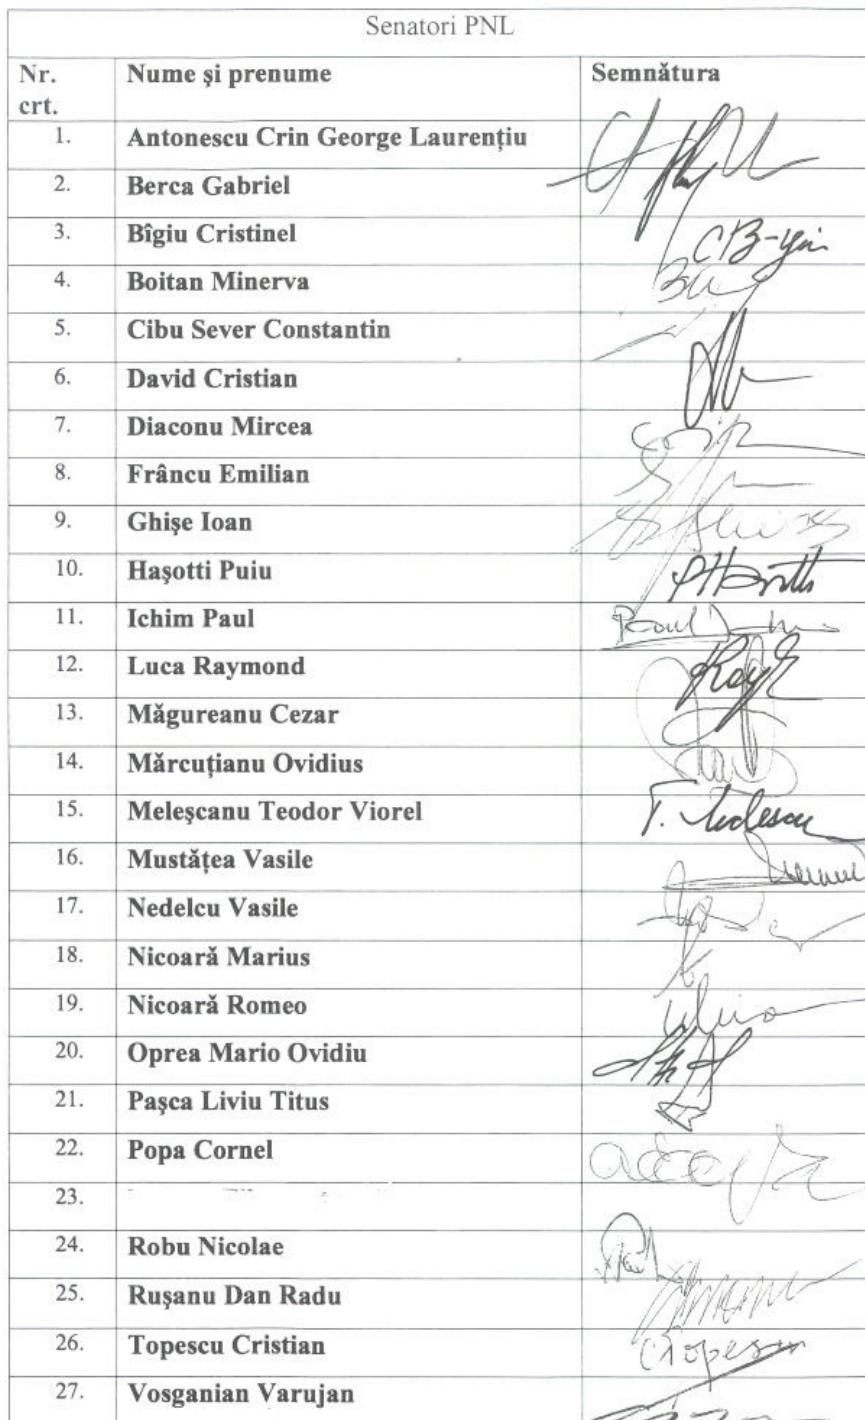 Senatori PNL
Nr. crt. Nume şi prenume Semnătura
1. Antonescu Crin George Laurenţiu
2. Berca Gabriel
3. Bîgiu Cristinel
4. Boitan Minerva
5. Cibu Sever Constantin
6. David Cristian
7. Diaconu Mircea
8. Frâncu Emilian
9. Ghişe Ioan
10. Haşotti Puiu
11. Ichim Paul
12. Luca Raymond
13. Măgureanu Cezar
14. Mărcuţianu Ovidius
15. Meleşcanu Teodor Viorel
16. Mustăţea Vasile
17. Nedelcu Vasile
18. Nicoară Marius
19. Nicoară Romeo
20. Oprea Mario Ovidiu
21. Paşca Liviu Titus
22. Popa Cornel
23.
24. Robu Nicolae
25. Ruşanu Dan Radu
26. Topescu Cristian
27. Vosganian Varujan